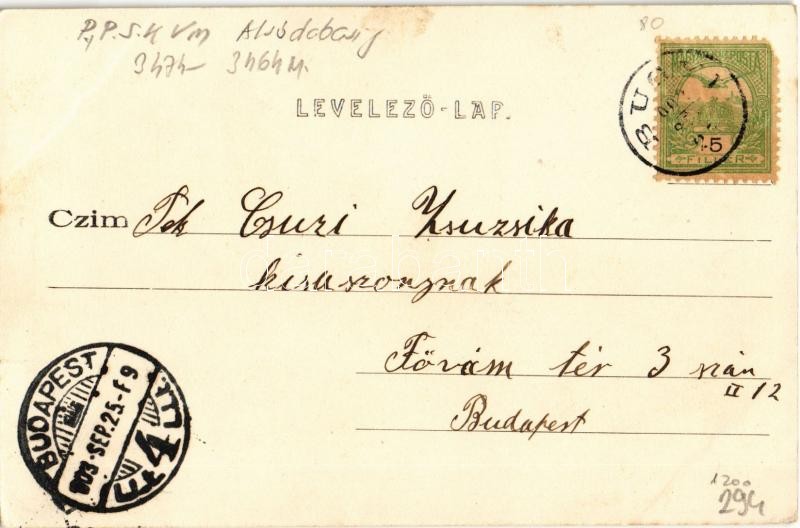 P.P.S.K Vm Alsódabas
3474 3464 M.
80
LEVELEZŐ-LAP.
POSTA
5
FILLÉR
Czim Tek Csuri Zsuzsika
kisasszonynak
Fővám tér 3 szám
II 12
Budapest
BUDAPEST
903 SEP. 25 - F 9
4
1200
294